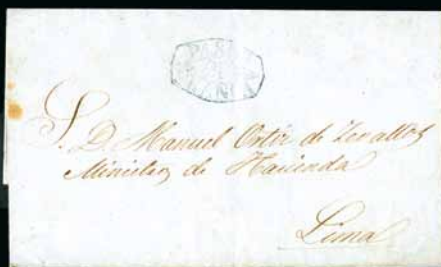 PASCO
FRANCA
S. D. Manuel Ortiz de Zevallos
Ministro de Hacienda
Lima